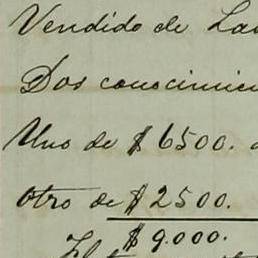 Vendido de La
Dos conocimie
Uno de $ 6500.
Otro de $ 2500.
$ 9.000.